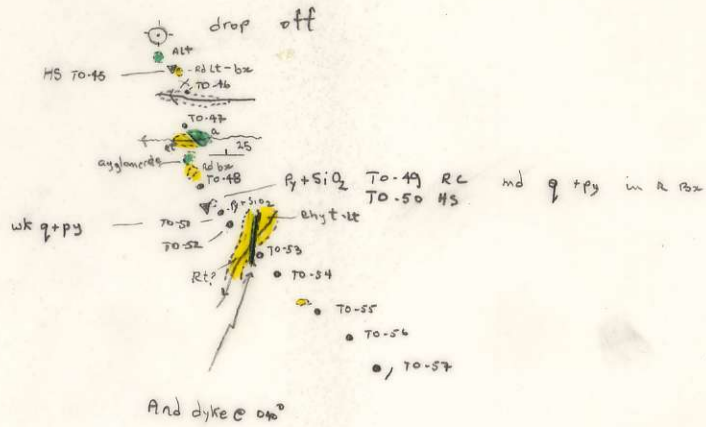 drop off
ALT
HS TO-45
Rd Lt-bx
TO-46
TO-47
a
25
agglomerate
Rd bx
TO-48
Py+SiO2 TO-49 RC md q+py in R Bx
TO-50 HS
Py+SiO2
wk q+py
TO-51
Rhyt-Lt
TO-52
TO-53
Rt?
TO-54
TO-55
TO-56
TO-57
And dyke @ 040°